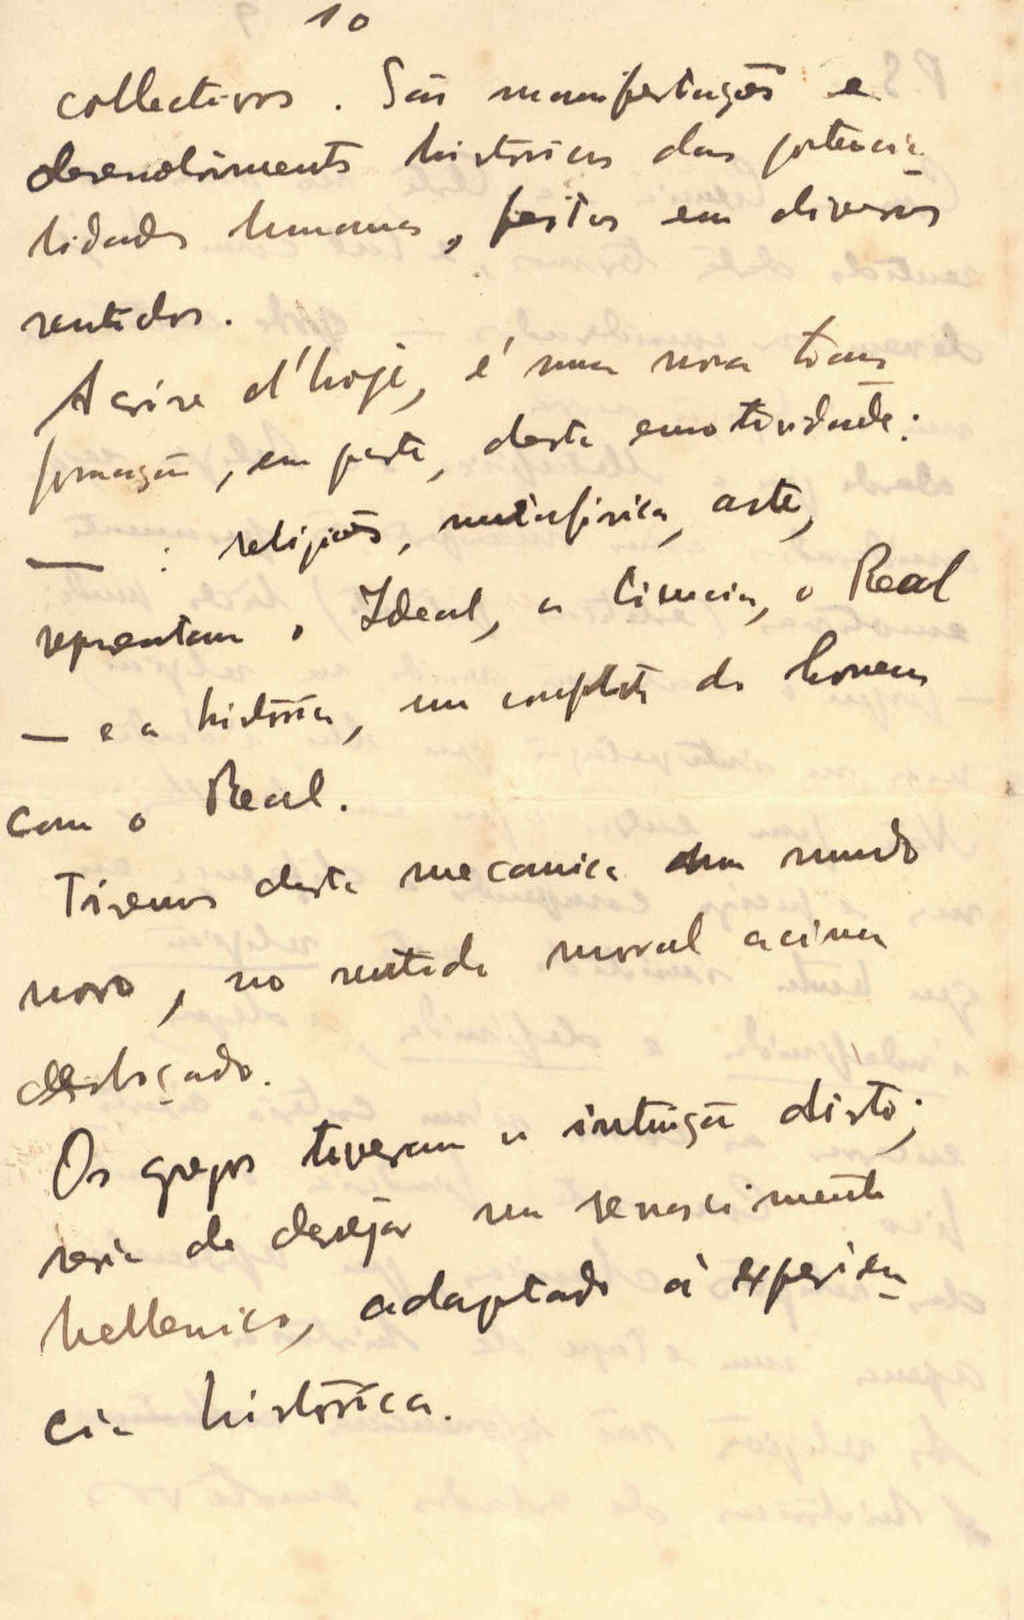 10
collectivos. São manifestações e
desenvolvimento historicos das potencia
lidades humanas, feitas em diversos
sentidos.
A crise d'hoje, é uma nova trans
formação, em parte, desta emotividade:
— : religiões, metafisica, arte,
representam o Ideal, a Ciencia, o Real
— e a história, um complexo do homem
com o Real.
Tiremos desta mecanica um mundo
novo, no sentido moral acima
desloçado.
Os gregos tiveram a intuição disto;
seria de desejar um renascimento
hellenico, adaptado à experien
cia histórica.